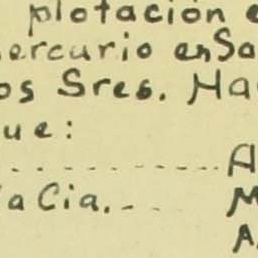 plotación e
ercurio en Sa
os Sres. Ha
ue:
.............. A
a Cia. - - M
A.